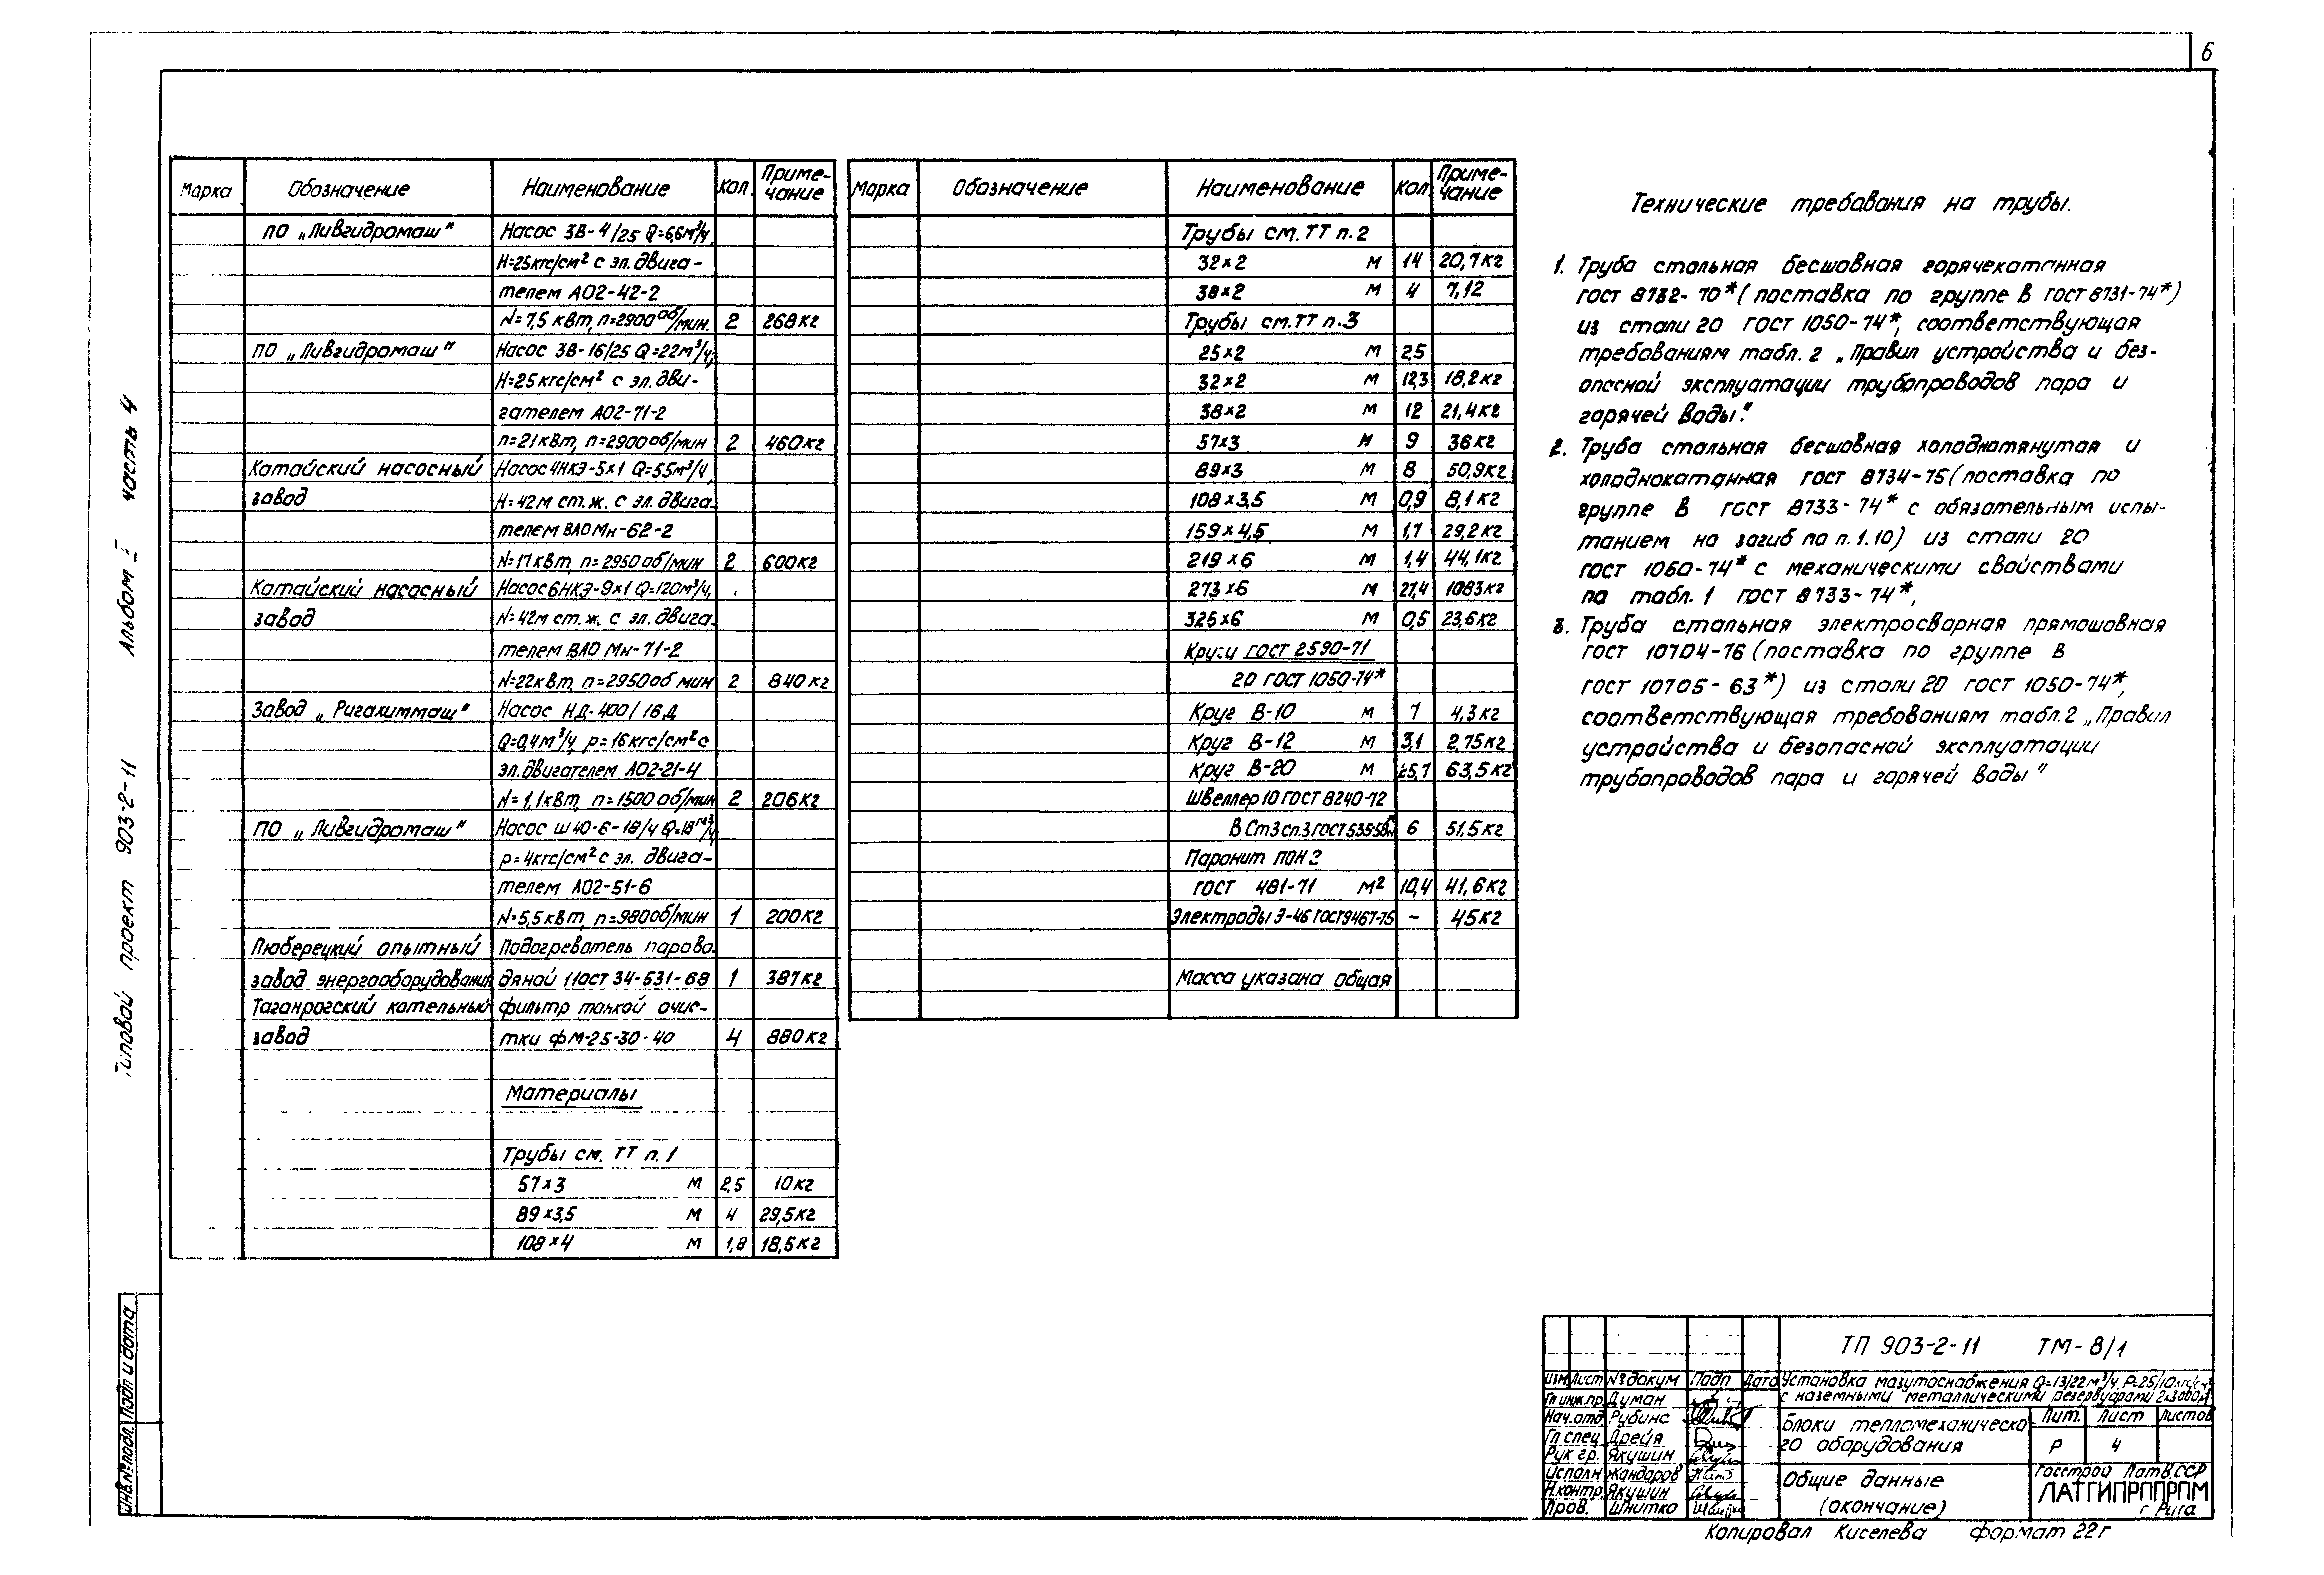 6
Типовой проект 903-2-11 Альбом I часть 4
Марка Обозначение Наименование Кол Приме-чание
ПО „Ливгидромаш" Насос 3В-4/25 Q=6,6м³/ч,
Н=25кгс/см² с эл. двига-
телем АО2-42-2
N=7,5 кВт, n=2900 об/мин. 2 268кг
ПО „Ливгидромаш" Насос 3В-16/25 Q=22м³/ч,
Н=25кгс/см² с эл. дви-
гателем АО2-71-2
n=21кВт, n=2900об/мин 2 460кг
Катайский насосный Насос 4НКЭ-5х1 Q=55м³/ч,
завод Н=42м ст.ж. с эл. двига-
телем ВАО Мн-62-2
N=17кВт, n=2950об/мин 2 600кг
Катайский насосный Насос 6НКЭ-9х1 Q=120м³/ч,
завод N=42м ст.ж. с эл. двига-
телем ВАО Мн-71-2
N=22кВт, n=2950об мин 2 840кг
Завод „Ригахиммаш" Насос НД-400/16Д
Q=0,4м³/ч р=16кгс/см² с
эл. двигателем АО2-21-4
N=1,1кВт, n=1500об/мин 2 206кг
ПО „Ливгидромаш" Насос Ш40-6-18/4 Q=18м³/ч
р=4кгс/см² с эл. двига-
телем АО2-51-6
N=5,5кВт, n=980об/мин 1 200кг
Люберецкий опытный Подогреватель парово-
завод энергооборудования дяной 11ОСТ 34-531-68 1 387кг
Таганрогский котельный фильтр тонкой очис-
завод тки ФМ-25-30-40 4 880кг
Материалы
Трубы см. ТТ п.1
57х3 м 2,5 10кг
89х3,5 м 4 29,5кг
108х4 м 1,8 18,5кг
Марка Обозначение Наименование Кол Приме-чание
Трубы см. ТТ п.2
32х2 м 14 20,7кг
38х2 м 4 7,12
Трубы см. ТТ п.3
25х2 м 2,5
32х2 м 12,3 18,2кг
38х2 м 12 21,4кг
57х3 м 9 36кг
89х3 м 8 50,9кг
108х3,5 м 0,9 8,1кг
159х4,5 м 1,7 29,2кг
219х6 м 1,4 44,1кг
273х6 м 27,4 1083кг
325х6 м 0,5 23,6кг
Круги ГОСТ 2590-71
20 ГОСТ 1050-74*
Круг В-10 м 7 4,3кг
Круг В-12 м 3,1 2,75кг
Круг В-20 м 25,7 63,5кг
Швеллер 10 ГОСТ 8240-72
В Ст3 сп.3 ГОСТ 535-58* м 6 51,5кг
Паронит ПОН 2
ГОСТ 481-71 м² 10,4 41,6кг
Электроды Э-46 ГОСТ 9467-75 – 45кг
Масса указана общая
Технические требования на трубы.
1. Труба стальная бесшовная горячекатанная
ГОСТ 8732-70* (поставка по группе В ГОСТ 8731-74*)
из стали 20 ГОСТ 1050-74*, соответствующая
требованиям табл. 2 „Правил устройства и без-
опасной эксплуатации трубопроводов пара и
горячей воды".
2. Труба стальная бесшовная холоднотянутая и
холоднокатанная ГОСТ 8734-75 (поставка по
группе В ГОСТ 8733-74* с обязательным испы-
танием на загиб по п. 1.10) из стали 20
ГОСТ 1050-74* с механическими свойствами
по табл. 1 ГОСТ 8733-74*,
3. Труба стальная электросварная прямошовная
ГОСТ 10704-76 (поставка по группе В
ГОСТ 10705-63*) из стали 20 ГОСТ 1050-74*,
соответствующая требованиям табл. 2 „Правил
устройства и безопасной эксплуатации
трубопроводов пара и горячей воды"
ТП 903-2-11 ТМ-8/1
Изм Лист № докум Подп Дата
Гл инж.пр Думан
Нач.отд Рубинс
Гл спец Дрейя
Рук гр. Якушин
Исполн Жандаров
Н.контр Якушин
Пров. Шнитко
Установка мазутоснабжения Q=13/22м³/ч, Р=25/10кгс/см²
с наземными металлическими резервуарами 2х3000м³
Блоки тепломеханическо-
го оборудования
Лит. Лист Листов
Р 4
Общие данные
(окончание)
Госстрой Латв.ССР
ЛАТГИПРОПРОМ
г Рига
Инв.№подл. Подп и дата
Копировал Киселева формат 22г